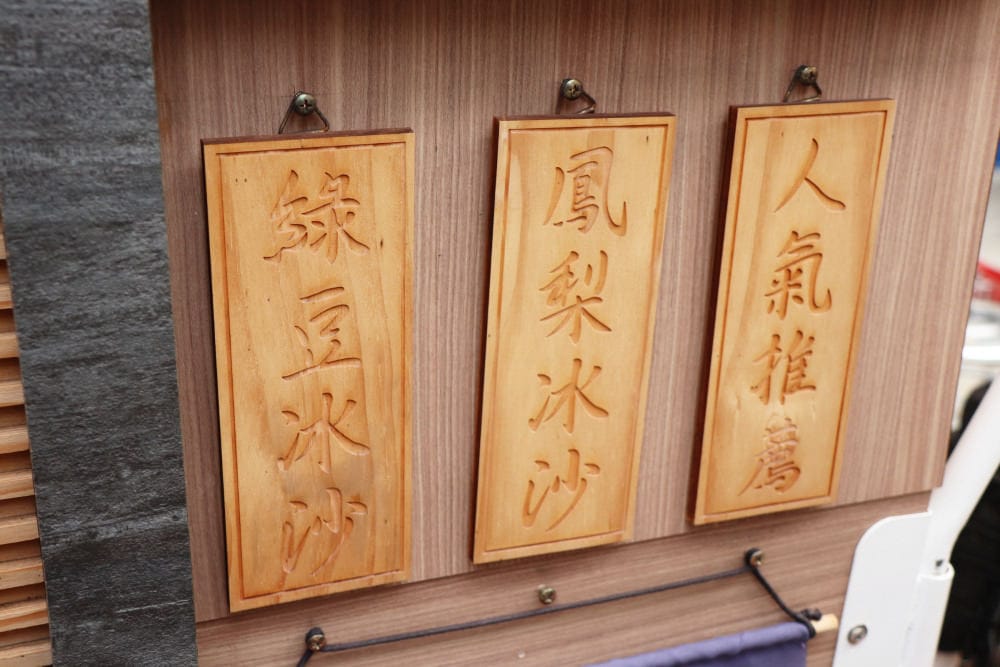 人氣推薦
鳳梨冰沙
綠豆冰沙